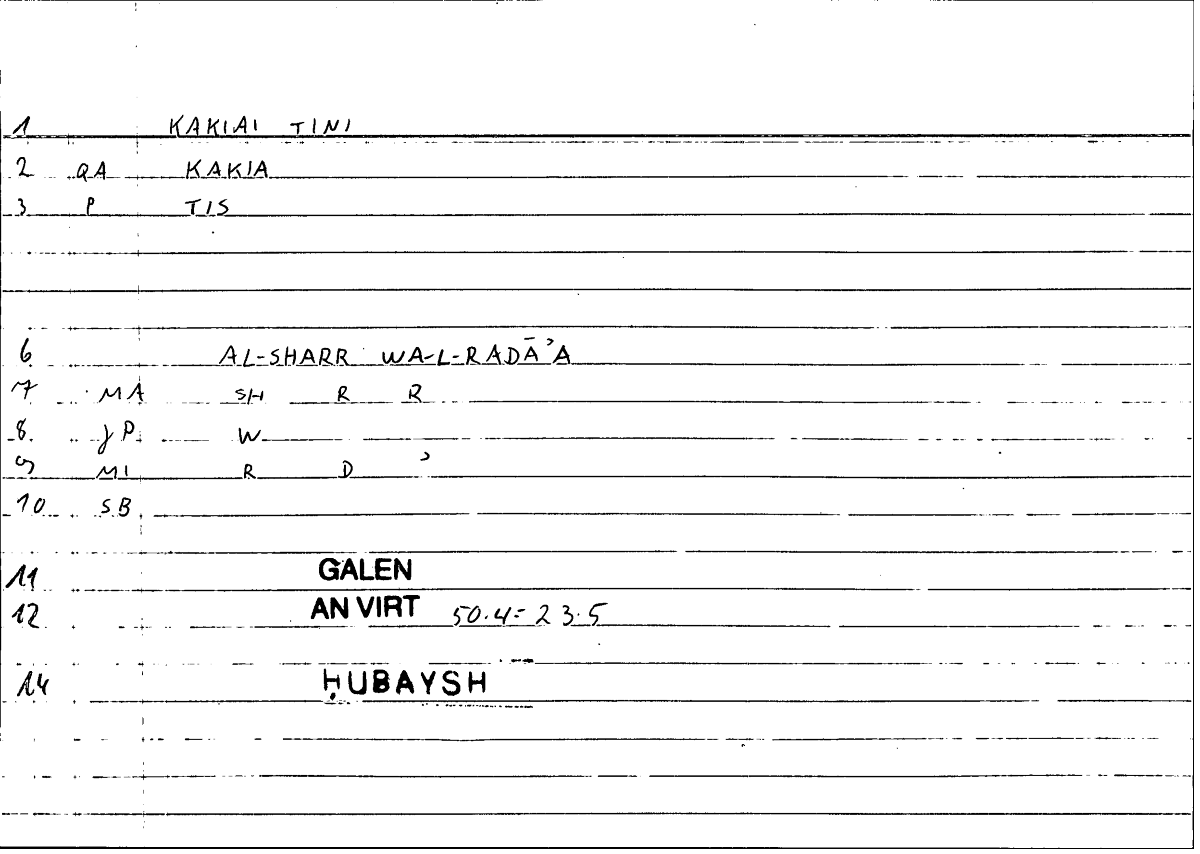 1 KAKIAI TINI
2 QA KAKIA
3 P TIS
6 AL-SHARR WA-L-RADĀʾA
7 MA SH R R
8. JP W
9 MI R D ʾ
10 SB
11 GALEN
12 AN VIRT 50.4=23.5
14 ḤUBAYSH